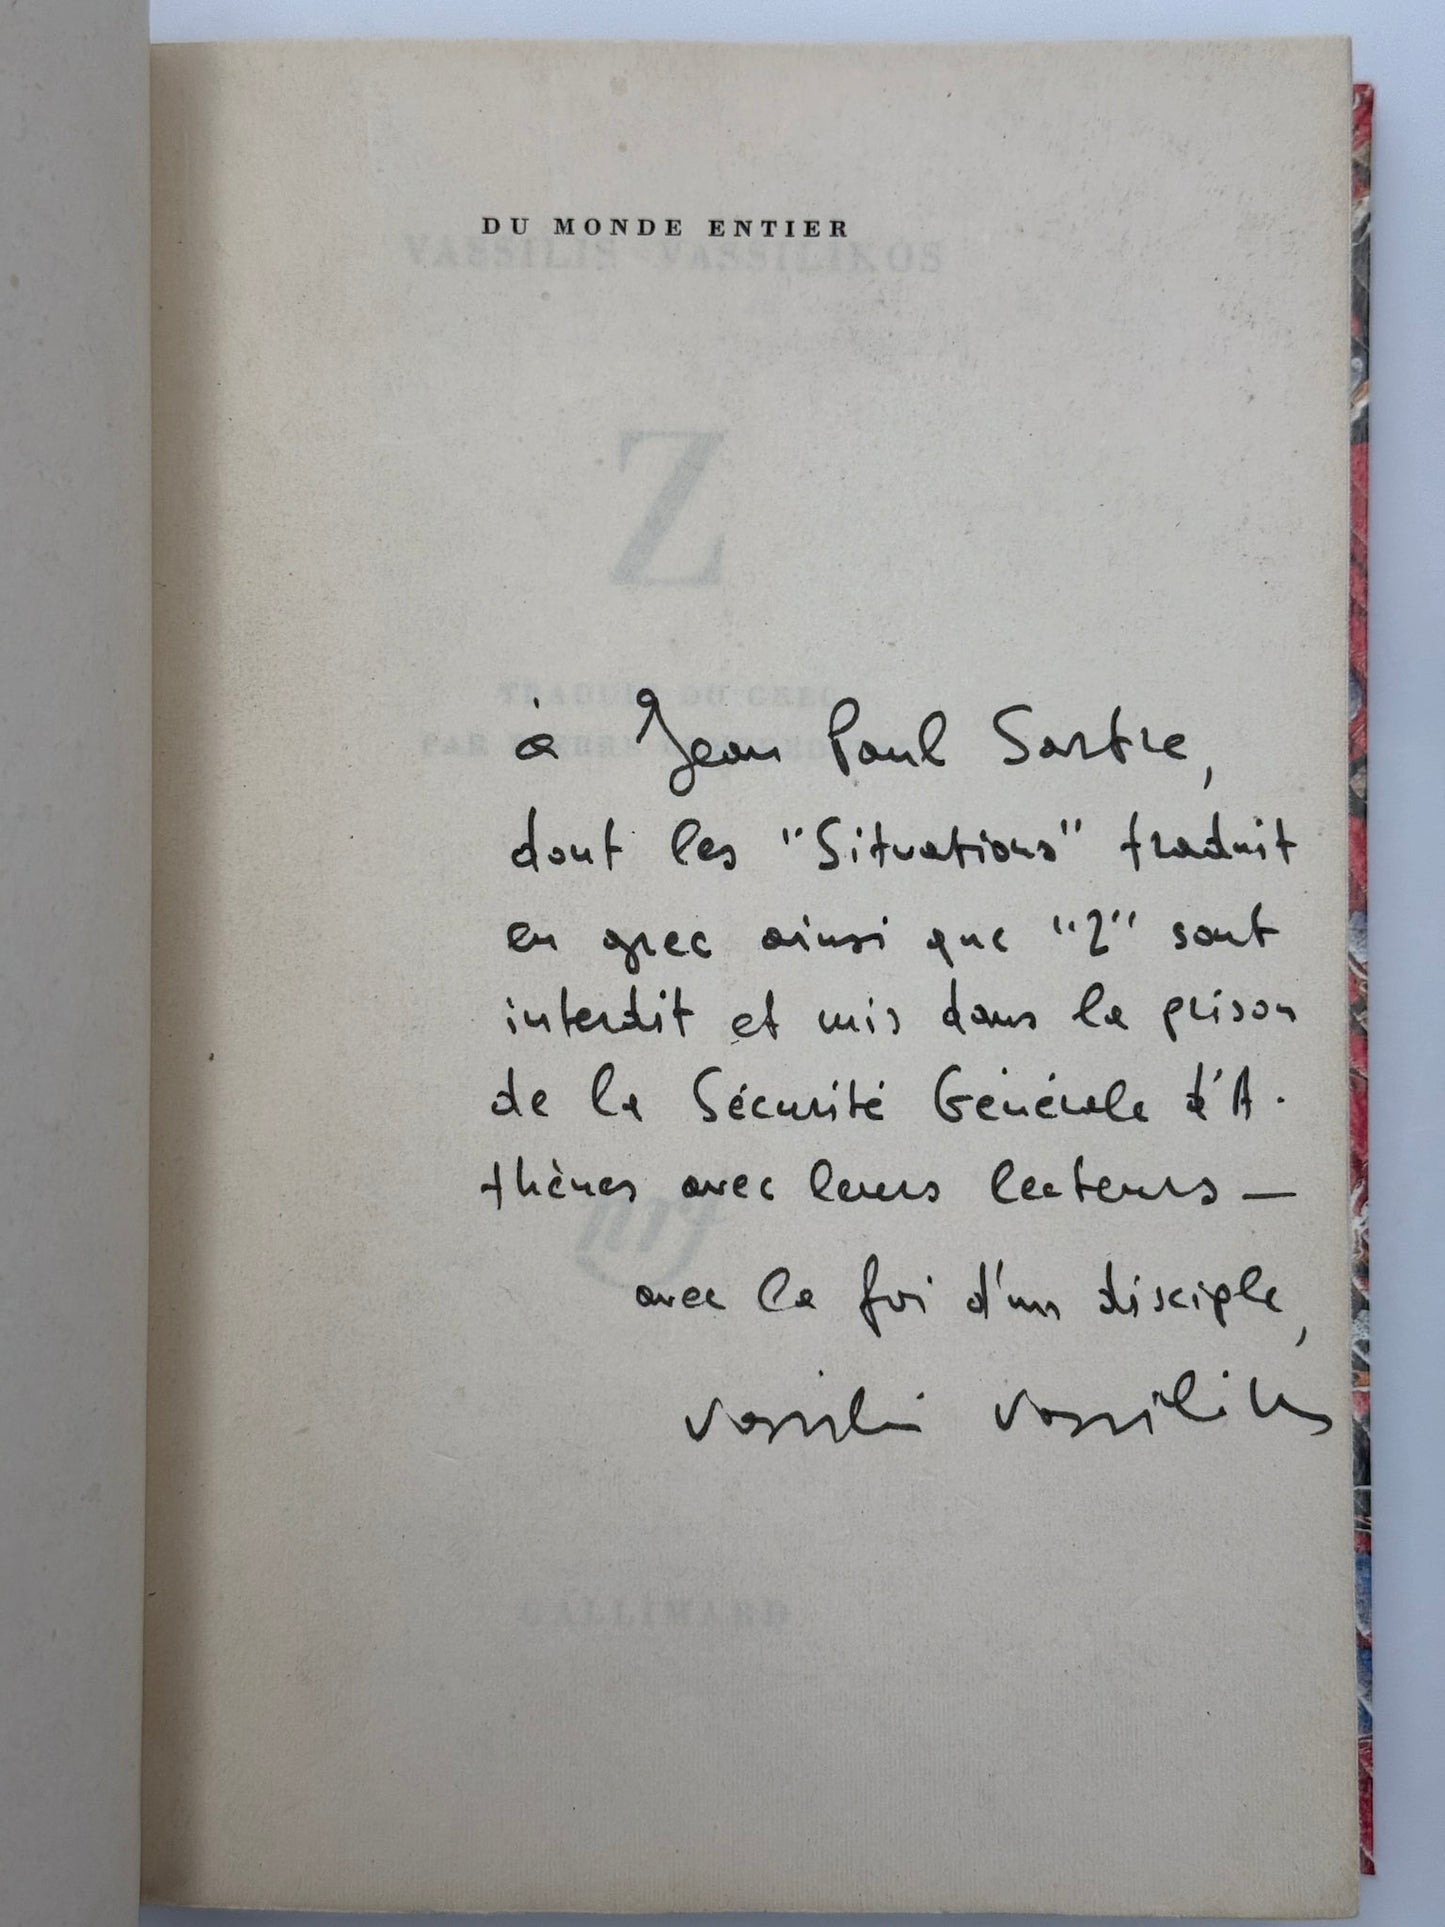 DU MONDE ENTIER
VASSILIS VASSILIKOS
Z
TRADUIT DU GREC
PAR
à Jean Paul Sartre,
dont les "Situations" traduit
en grec ainsi que "Z" sont
interdit et mis dans la prison
de la Sécurité Générale d'A-
thènes avec leurs lecteurs —
nrf
avec la foi d'un disciple,
Vassilis Vassilikos
GALLIMARD